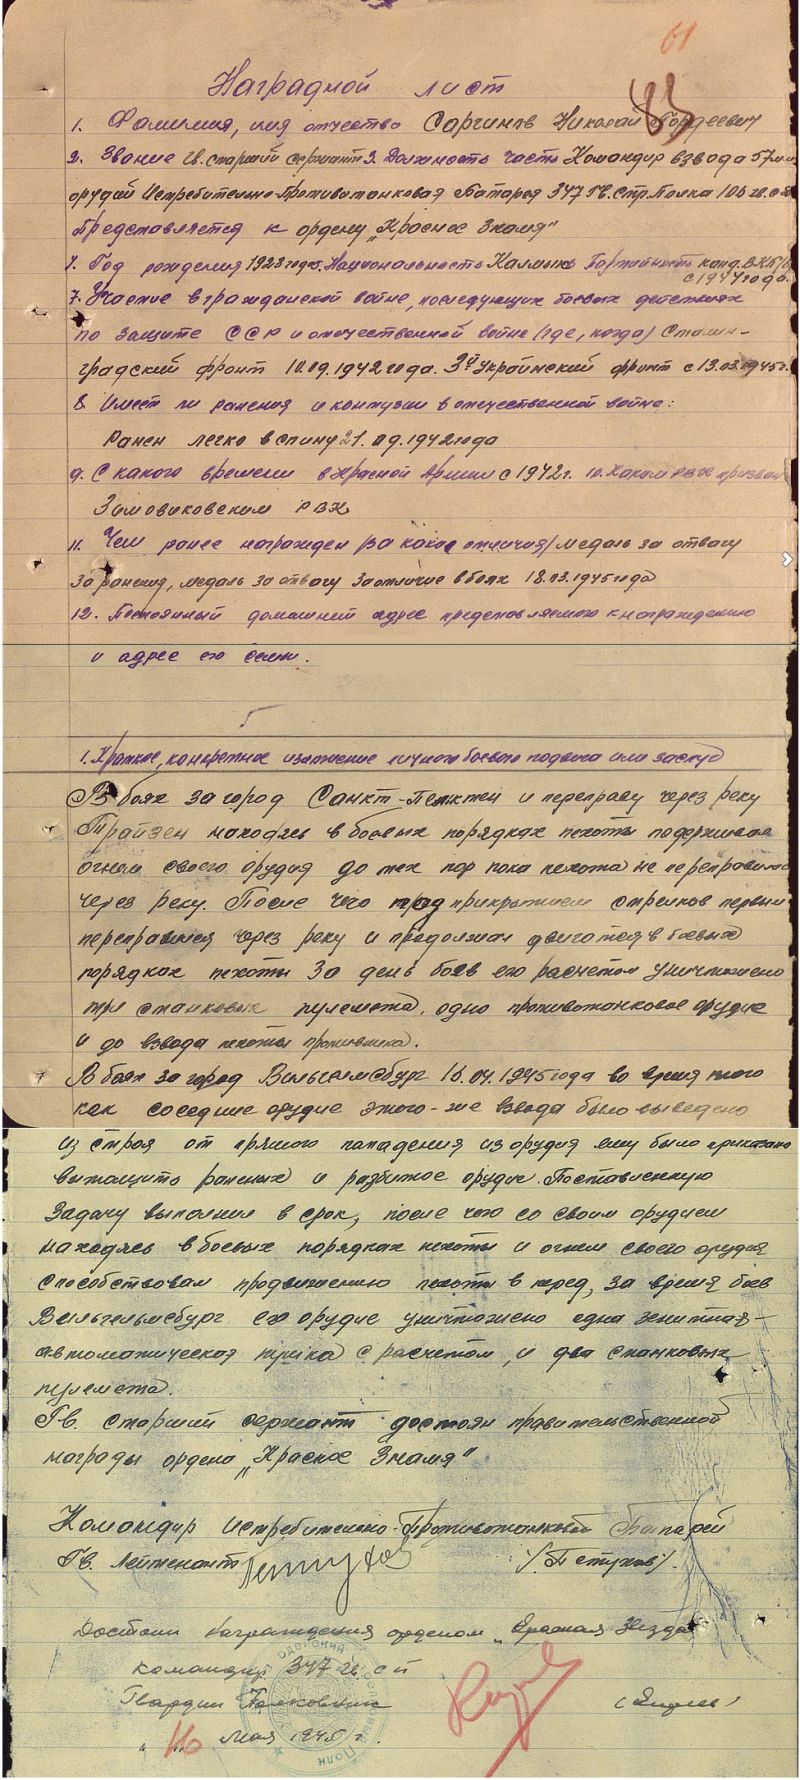 61
83
Наградной лист
1. Фамилия, имя отчество Саргинов Николай Гордеевич
2. Звание Гв. старший сержант 3. Должность часть Командир взвода 57 м.м
орудий Истребительно-Противотанковая Батарея 347 Гв. Стр. Полка 106 гв. с.д.
Представляется к ордену „Красное Знамя"
4. Год рождения 1923 года 5. Национальность Калмык Партийность канд. ВКП/б/
с 1944 года.
7. Участие в гражданской войне, последующих боевых действиях
по защите СССР и отечественной войне (где, когда) Сталин-
градский фронт 10.09.1942 года. 3й Украинский фронт с 13.03.1945 г.
8. Имеет ли ранения и контузии в отечественной войне:
Ранен легко в спину 21.09.1942 года
9. С какого времени в Красной Армии с 1942 г. 10. Каким РВК призван
Зимовиковским РВК
11. Чем ранее награжден /за какие отличия/ медаль за отвагу
за ранения, медаль за отвагу за отличие в боях 18.03.1945 года
12. Постоянный домашний адрес представляемого к награждению
и адрес его семьи.
1. Краткое, конкретное изложение личного боевого подвига или заслуг
В боях за город Санкт-Пельтен и переправу через реку
Трайзен находясь в боевых порядках пехотыподерживал
огнем своего орудия до тех пор пока пехота не переправилась
через реку. После чего под прикрытием стрелков первым
переправился через реку и продолжал двигатся в боевых
порядках пехоты За день боев его расчетом уничтожено
три станковых пулемета, одно противотанковое орудие
и до взвода пехоты противника.
В боях за город Вильгельмсбург 16.04.1945 года во время того
как соседние орудие этого-же взвода было выведено
из строя от прямого попадения из орудия ему было приказано
вытащить раненых и разбитое орудие. Поставленную
задачу выполнил в срок, после чего со своим орудием
находясь в боевых порядках пехоты и огнем своего орудия
способствовал продвижению пехоты в перед, за время боев
Вильгельмсбург его орудие уничтожено одна зенитная-
автоматическая пушка с расчетом, и два станковых
пулемета.
Гв. старший сержант достоин правительственной
награды ордена „Красное Знамя"
Командир Истребительно-Противотанковой Батареи
Гв. Лейтенант Петухов /Петухов/.
Достоин награждения орденом „Красная Звезда"
Командир 347 гв. с п
Гвардии Полковник
„16" Мая 1945 г.